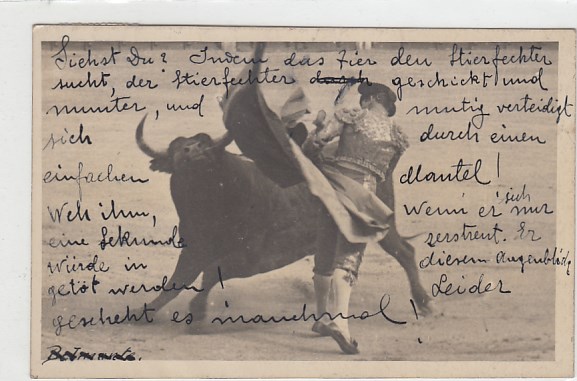 Siehst Du? Indem das Tier den Stierfechter
sucht, der Stierfechter durch geschickt und
munter, und mutig verteidigt
sich durch einen
einfachen Mantel!
Weh ihm, Wenn er sich nur
eine Sekunde zerstreut. Er
würde in diesem Augenblick
getöt werden! Leider
geschieht es manchmal!